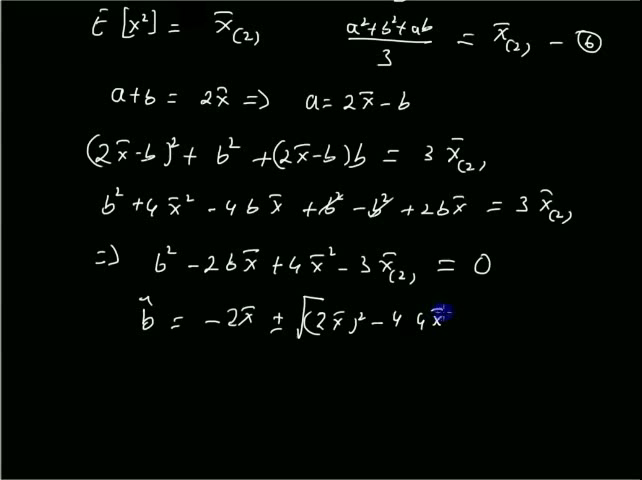 E [x²] = x̄₍₂₎    (a²+b²+ab)/3 = x̄₍₂₎ — ⑥
a+b = 2x̄ => a = 2x̄ - b
(2x̄-b)² + b² + (2x̄-b)b = 3 x̄₍₂₎
b² + 4x̄² - 4bx̄ + b² - b² + 2bx̄ = 3 x̄₍₂₎
=> b² - 2bx̄ + 4x̄² - 3x̄₍₂₎ = 0
b̂ = -2x̄ ± √(2x̄)² - 4 4x̄